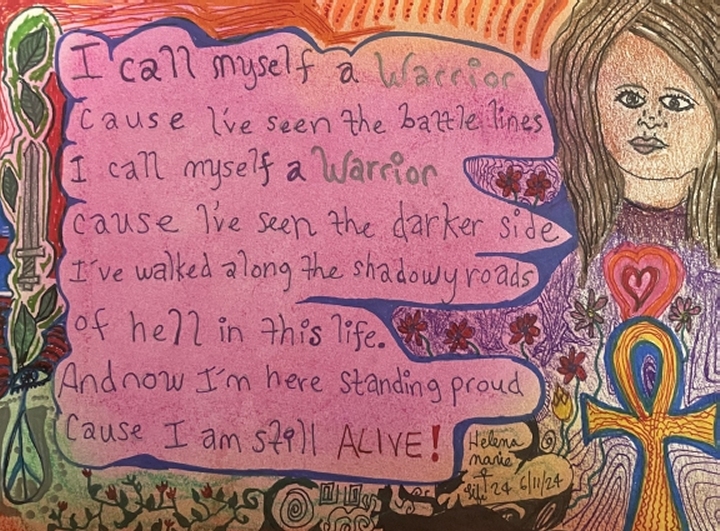 I call myself a Warrior
Cause I've seen the battle lines
I call myself a Warrior
cause I've seen the darker side
I've walked along the shadowy roads
of hell in this life.
And now I'm here standing proud
Cause I am still ALIVE!
Helena
marie
24 6/11/24